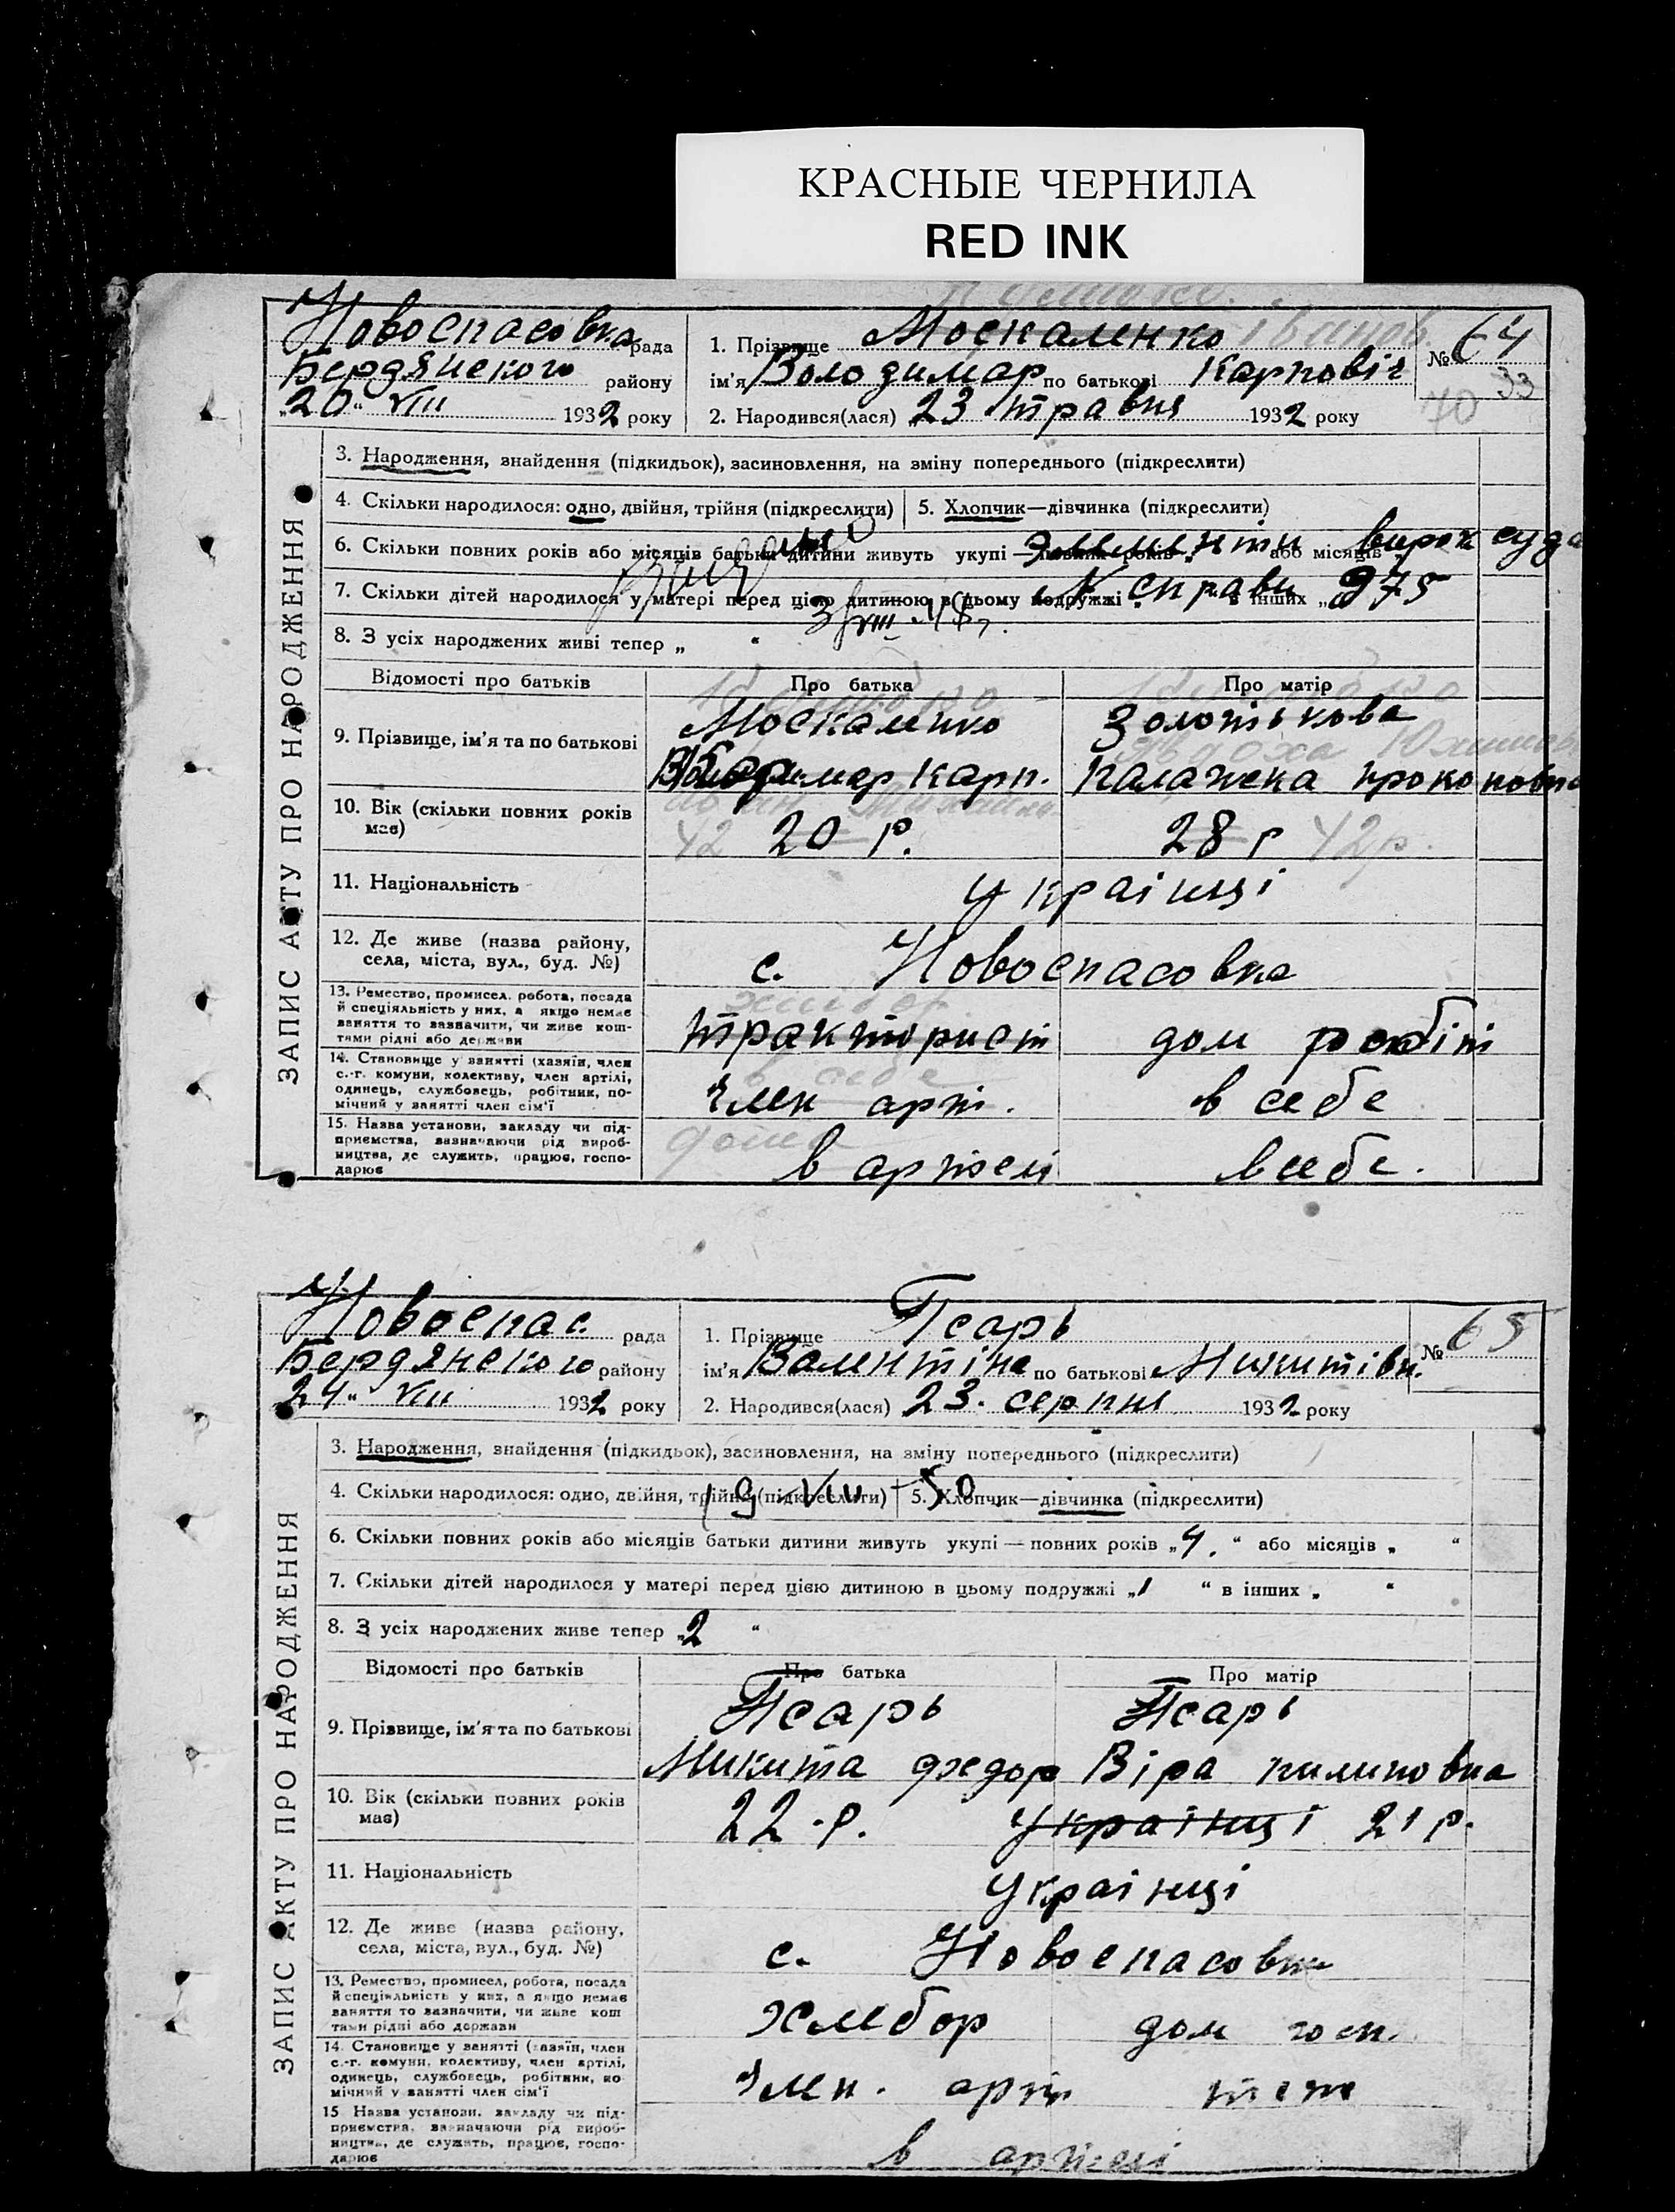 КРАСНЫЕ ЧЕРНИЛА
RED INK
Новоспасовка рада
Бердянского району
"20" VIII 1932 року
1. Прізвище Москаленко
ім'я Володимар по батькові Карповіч
2. Народився(лася) 23 травня 1932 року
№ 64
33
70
ЗАПИС АКТУ ПРО НАРОДЖЕННЯ
3. Народження, знайдення (підкидьок), засиновлення, на зміну попереднього (підкреслити)
4. Скільки народилося: одно, двійня, трійня (підкреслити)
5. Хлопчик—дівчинка (підкреслити)
6. Скільки повних років або місяців батьки дитини живуть укупі — повних років або місяців
вирок суда
7. Скільки дітей народилося у матері перед цією дитиною в цьому подружжі в інших „
№ справи 975
8. З усіх народжених живі тепер „ "
Відомості про батьків
Про батька
Про матір
9. Прізвище, ім'я та по батькові
Москаленко
Карп.
Золотькова
Палажека Проконовна
10. Вік (скільки повних років має)
42 20 р.
28 р 42 р.
11. Національність
Українці
12. Де живе (назва району, села, міста, вул., буд. №)
с. Новоспасовка
13. Ремество, промисел, робота, посада
й спеціяльність у них, а якщо немає
заняття то зазначити, чи живе кош-
тами рідні або держави
тракторист
дом робіт
14. Становище у занятті (хазяїн, член
с.-г. комуни, колективу, член артілі,
одинець, службовець, робітник, по-
мічний у занятті член сім'ї
член арт.
в себе
15. Назва установи, закладу чи під-
приємства, зазначаючи рід вироб-
ництва, де служить, працює, госпо-
дарює
дома
в артелі
в себе.
Новоспас. рада
Бердянского району
24" VIII 1932 року
1. Прізвище Псарь
ім'я Валентіна по батькові Микитівн.
2. Народився(лася) 23. серпня 1932 року
№ 65
ЗАПИС АКТУ ПРО НАРОДЖЕННЯ
3. Народження, знайдення (підкидьок), засиновлення, на зміну попереднього (підкреслити)
4. Скільки народилося: одно, двійня, трійня (підкреслити)
5. Хлопчик—дівчинка (підкреслити)
6. Скільки повних років або місяців батьки дитини живуть укупі — повних років „4." або місяців „ "
7. Скільки дітей народилося у матері перед цією дитиною в цьому подружжі „1 " в інших „ "
8. З усіх народжених живе тепер „2 "
Відомості про батьків
Про батька
Про матір
9. Прізвище, ім'я та по батькові
Псарь
Микита Федор
Псарь
Віра Пилиповна
10. Вік (скільки повних років має)
22.р.
Українці 21 р.
11. Національність
Українці
12. Де живе (назва району, села, міста, вул., буд. №)
с. Новоспасовка
13. Ремество, промисел, робота, посада
й спеціяльність у них, а якщо немає
заняття то зазначити, чи живе кош
тами рідні або держави
хлебор
дом госп.
14. Становище у занятті (хазяїн, член
с.-г. комуни, колективу, член артілі,
одинець, службовець, робітник, по
мічний у занятті член сім'ї
член. арт
теж
15. Назва установи, закладу чи під-
приємства, зазначаючи рід вироб-
ництва, де служить, працює, госпо-
дарює
в артелі